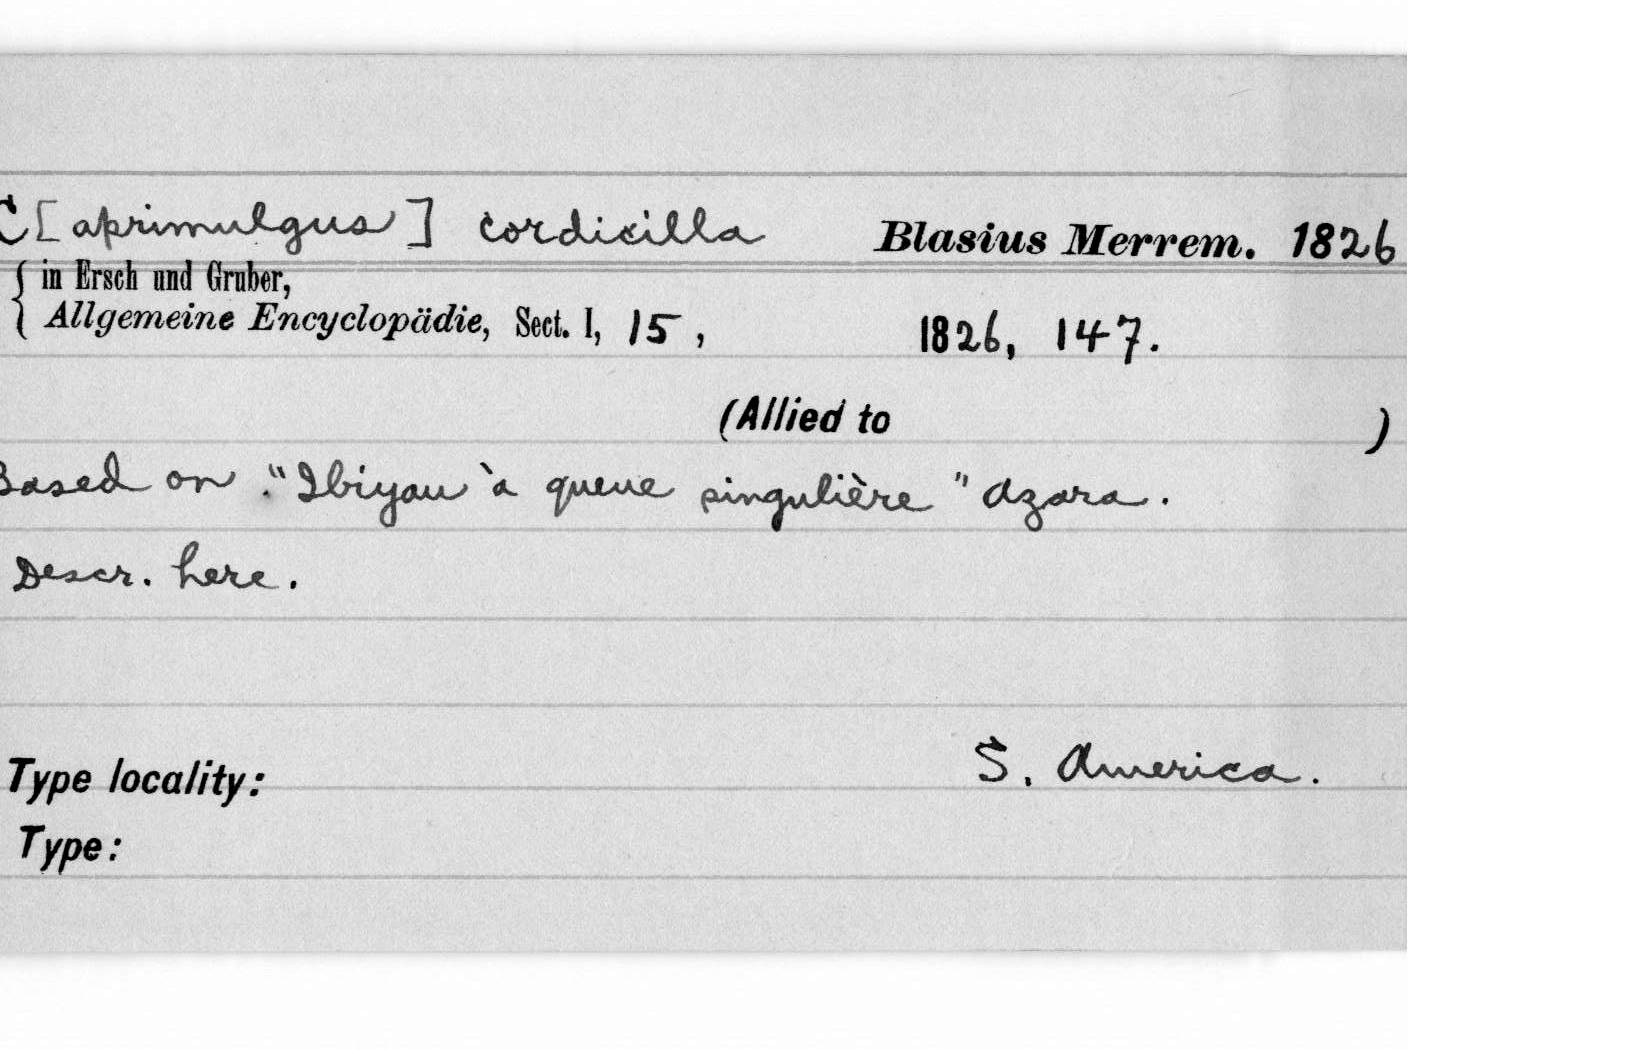 C[aprimulgus] cordicilla Blasius Merrem. 1826
in Ersch und Gruber,
Allgemeine Encyclopädie, Sect. I, 15, 1826, 147.
(Allied to )
Based on "Ibiyau à queue singulière" Azara.
Descr. here.
Type locality: S. America.
Type: